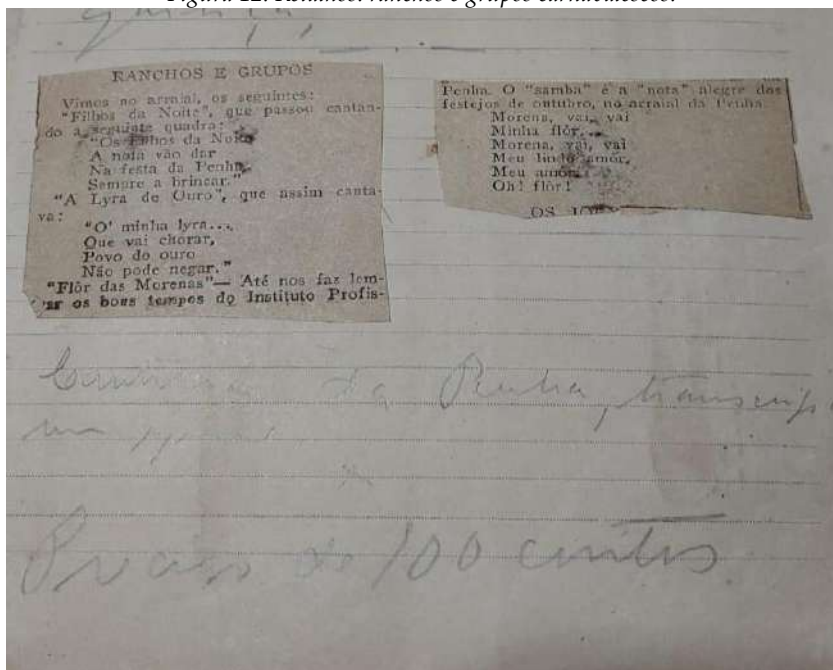 RANCHOS E GRUPOS
Vimos no arraial, os seguintes:
"Filhos da Noite", que passou cantan-
do a seguinte quadra:
"Os Filhos da Noite
A nota vão dar
Na festa da Penha,
Sempre a brincar."
"A Lyra de Ouro", que assim canta-
va:
"O' minha lyra...
Que vai chorar,
Povo do ouro
Não pode negar."
"Flôr das Morenas"— Até nos faz lem-
ar os bons tempos do Instituto Profis-
Penha. O "samba" é a "nota" alegre dos
festejos de outubro, no arraial da Penha.
Morena, vai, vai
Minha flôr,
Morena, vai, vai
Meu lindo amôr,
Meu amôr
Oh! flôr!
OS
da Penha, transcrip
de 100 contos